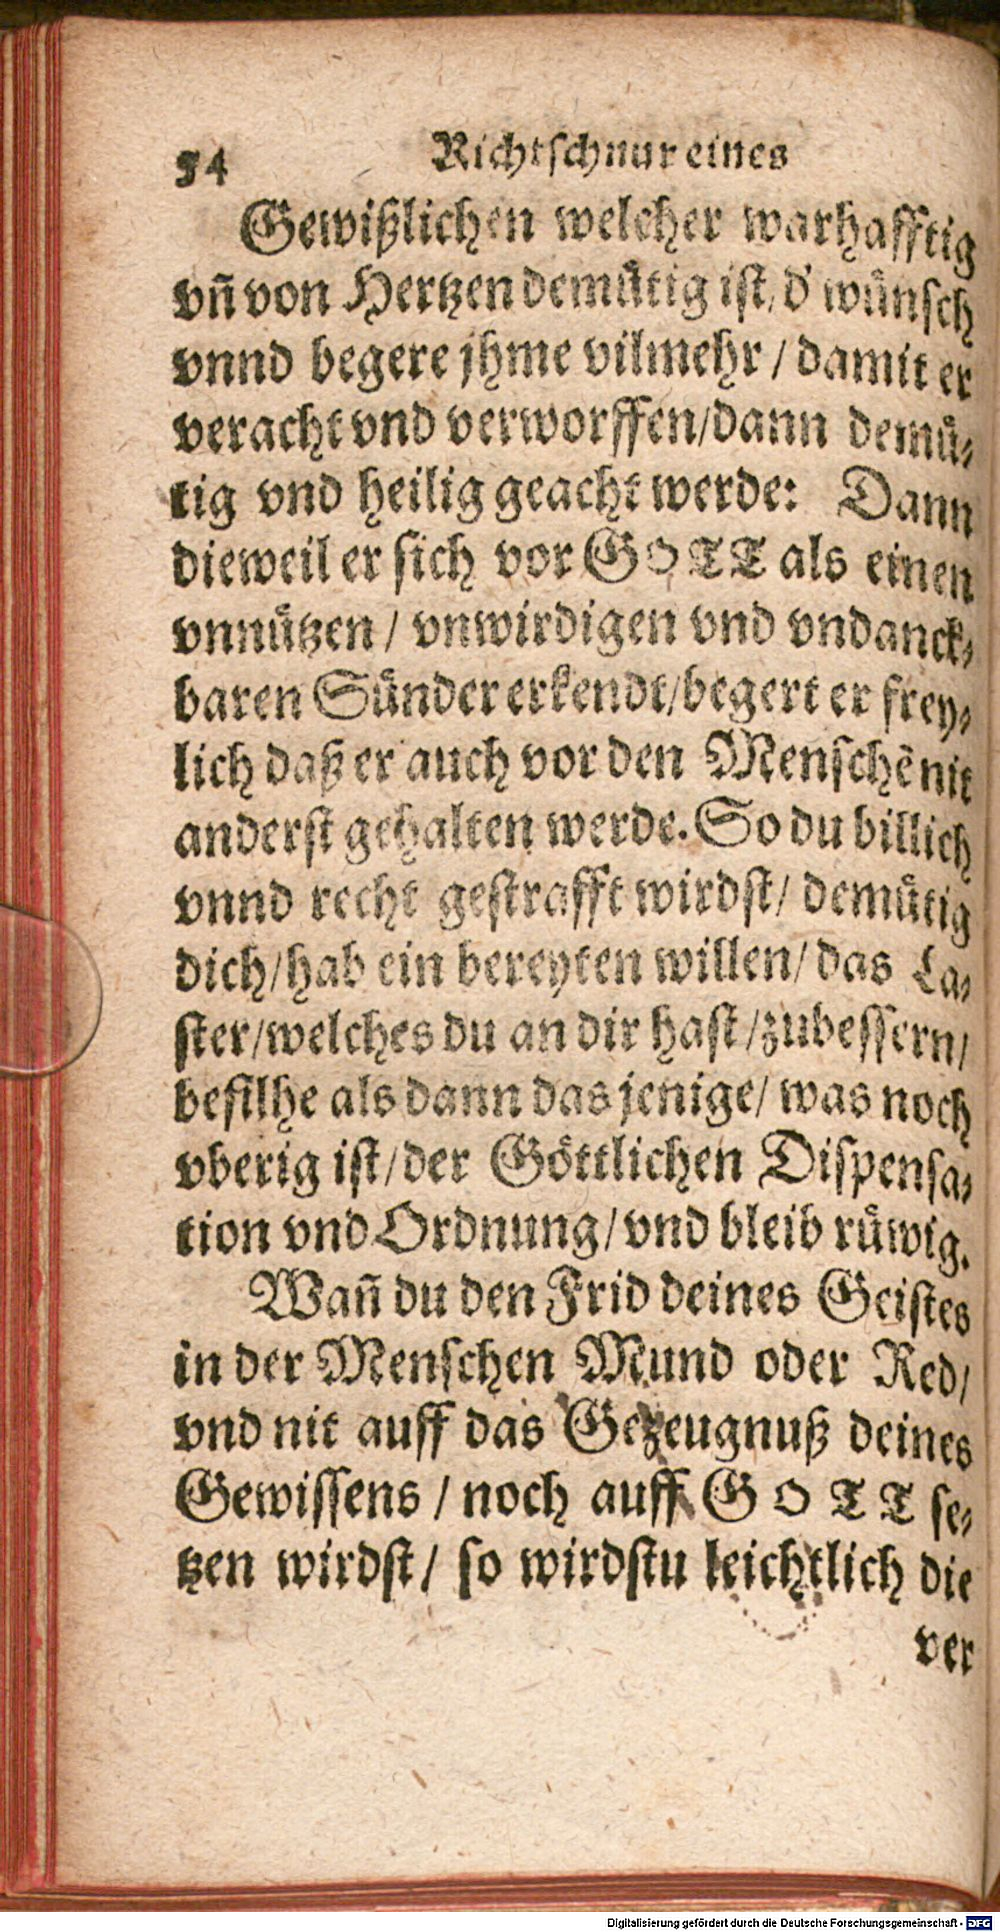 54 Richtschnur eines
Gewißlichen welcher warhafftig
vñ von Hertzen demuͤtig ist / d' wuͤnsch
vnnd begere jhme vilmehr / damit er
veracht vnd verworffen / dann demuͤ-
tig vnd heilig geacht werde: Dann
dieweil er sich vor GOTT als einen
vnnuͤtzen / vnwirdigen vnd vndanck-
baren Suͤnder erkendt / begert er frey-
lich daß er auch vor den Menschẽ nit
anderst gehalten werde. So du billich
vnnd recht gestrafft wirdst / demuͤtig
dich / hab ein bereyten willen / das La-
ster / welches du an dir hast / zubessern /
befilhe als dann das jenige / was noch
vberig ist / der Goͤttlichen Dispensa-
tion vnd Ordnung / vnd bleib ruͤwig.
Wañ du den Frid deines Geistes
in der Menschen Mund oder Red /
vnd nit auff das Gezeugnuß deines
Gewissens / noch auff GOTT se-
tzen wirdst / so wirdstu leichtlich die
ver
Digitalisierung gefördert durch die Deutsche Forschungsgemeinschaft - DFG